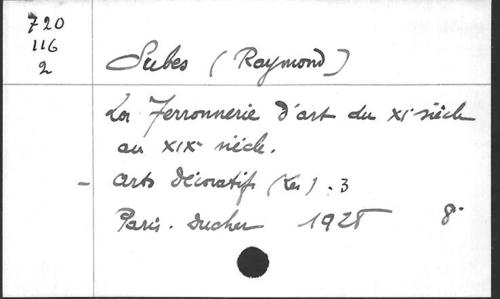 720
116
2
Subes (Raymond)
La Ferronnerie d'art du XIe siècle
au XIXe siècle.
- Arts Décoratifs (Les). 3
Paris. Ducher 1928 8°